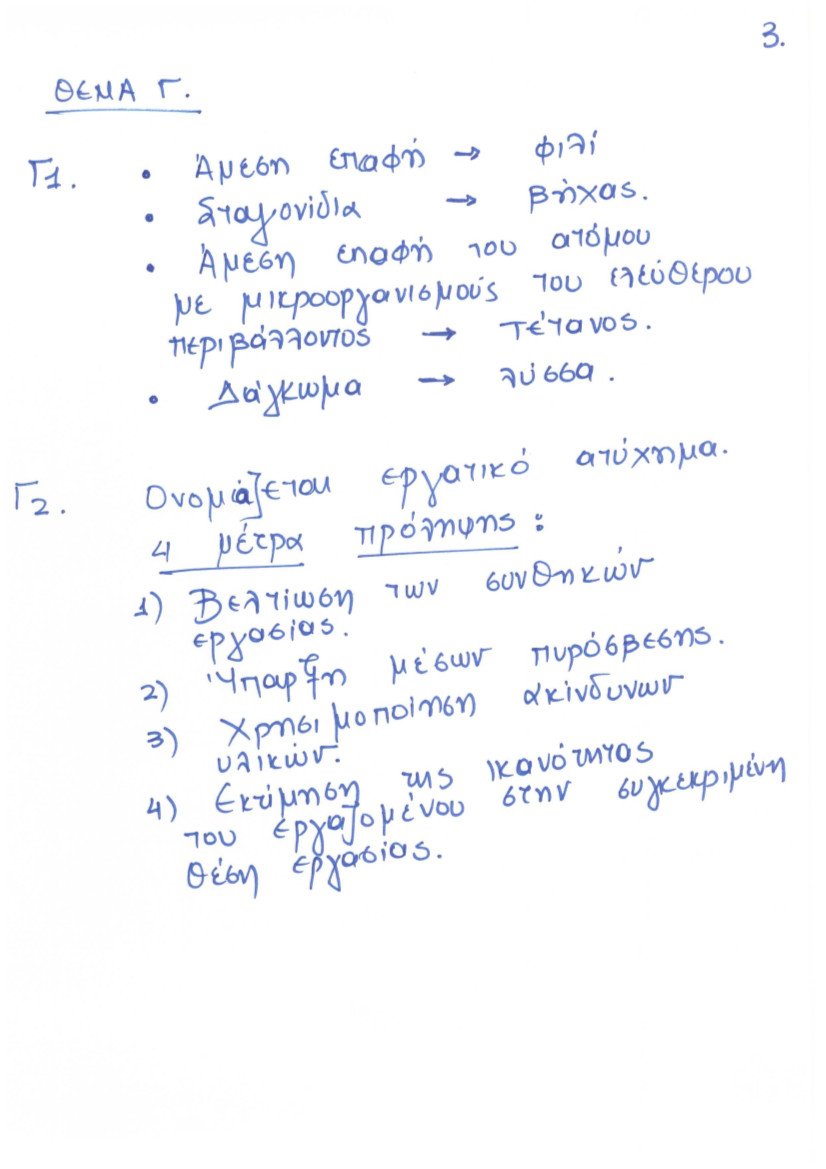 3.
ΘΕΜΑ Γ.
Γ1. • Άμεση επαφή → φιλί
• Σταγονίδια → βήχας.
• Άμεση επαφή του ατόμου
με μικροοργανισμούς του ελεύθερου
περιβάλλοντος → τέτανος.
• Δάγκωμα → λύσσα.
Γ2. Ονομάζεται εργατικό ατύχημα.
4 μέτρα πρόληψης:
1) Βελτίωση των συνθηκών
εργασίας.
2) Ύπαρξη μέσων πυρόσβεσης.
3) Χρησιμοποίηση ακίνδυνων
υλικών.
4) Εκτίμηση της ικανότητας
του εργαζομένου στην συγκεκριμένη
θέση εργασίας.